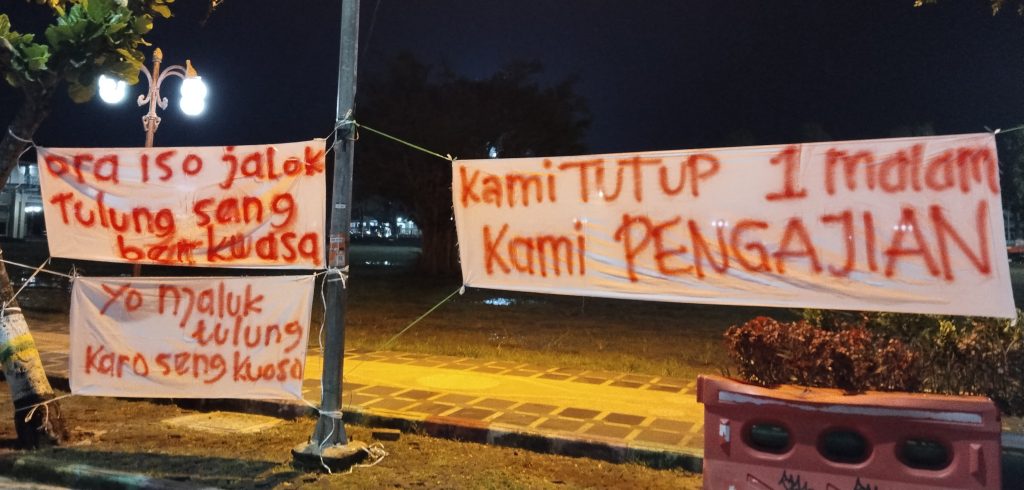 ora iso jalok
Tulung sang
berkwasa
Yo Njaluk
tulung
Karo seng kuoso
Kami TUTUP 1 malam
Kami PENGAJIAN